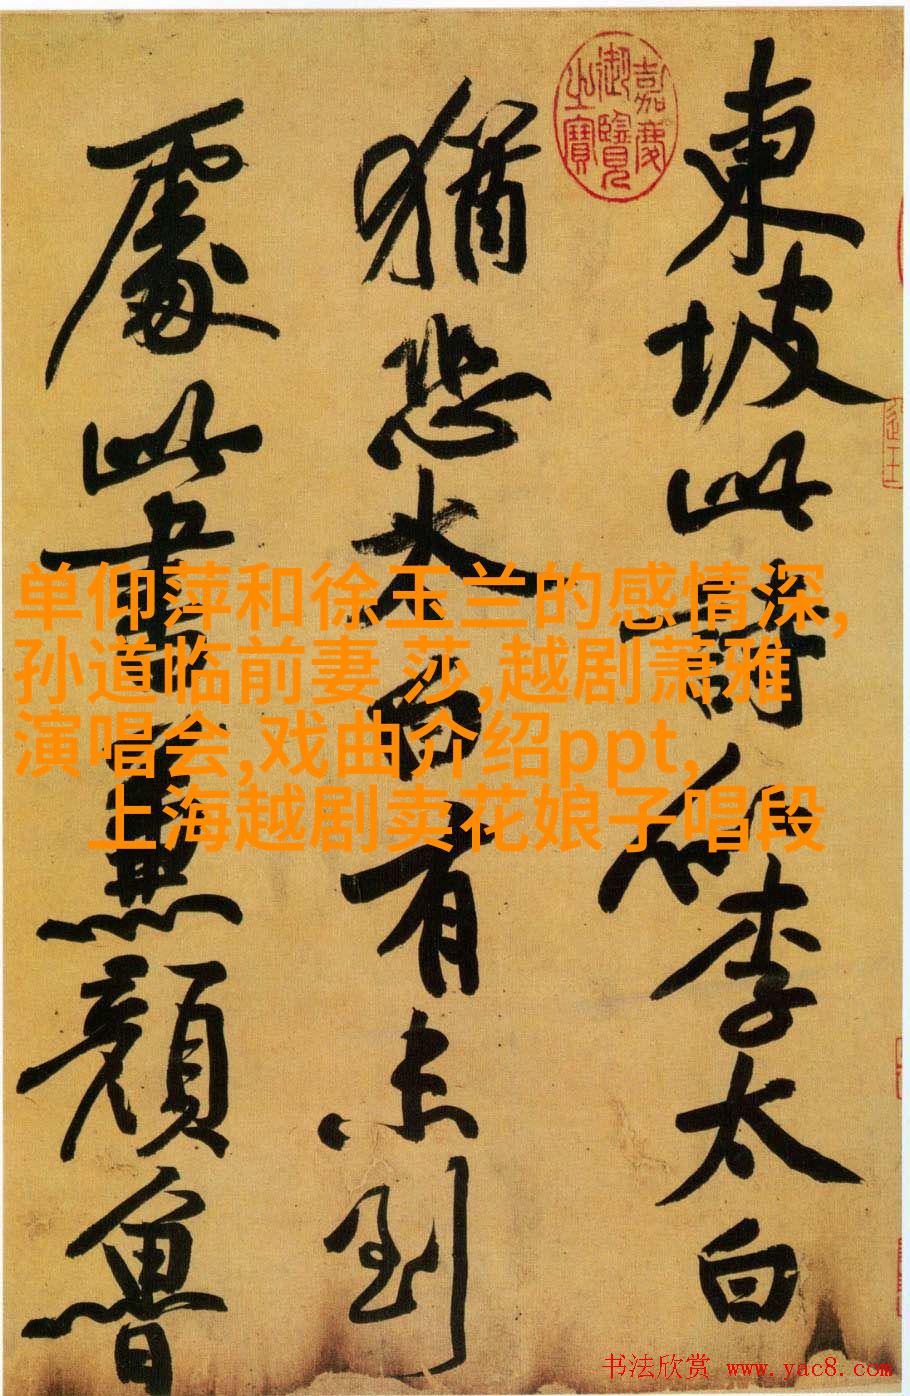 東坡此詩似李太白
猶恐太白有未到
處此書兼顏魯
嘉慶
御覽
之寶
单仰萍和徐玉兰的感情深,
孙道临前妻 莎,越剧萧雅
演唱会,戏曲介绍ppt,
上海越剧卖花娘子唱段
书法欣赏 www.yac8.com